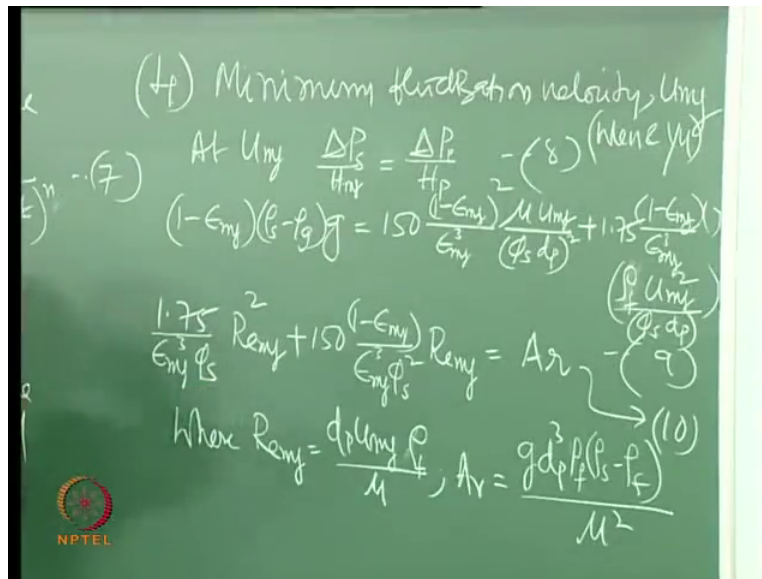 (4) Minimum fluidization velocity, Umf
(Wen & Yu)
At Umf ΔPs/Hmf = ΔPp/Hp - (8)
)^n -- (7)
(1-ϵmf)(ρs-ρg)g = 150 (1-ϵmf)^2/ϵmf^3 μ Umf/(φs dp)^2 + 1.75 (1-ϵmf)/ϵmf^3 ( )
(ρf Umf^2/(φs dp)) - (9)
1.75/(ϵmf^3 φs) Remf^2 + 150 (1-ϵmf)/(ϵmf^3 φs^2) Remf = Ar → (10)
Where Remf = dp Umf ρf/μ ; Ar = g dp^3 ρf (ρs-ρf)/μ^2
NPTEL